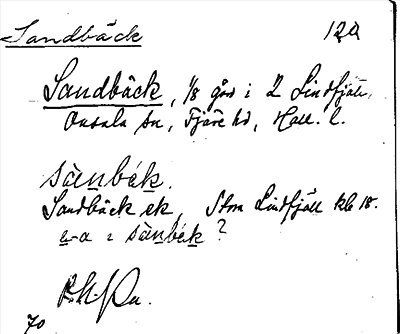 Sandbäck 120
Sandbäck, 1/8 gård i 2 Lindfjäll,
Onsala sn, Fjäre hd, Hall. l.
sànbék.
Sandbäck sk, Stora Lindfjäll kb 18.
a = sànbék?
70